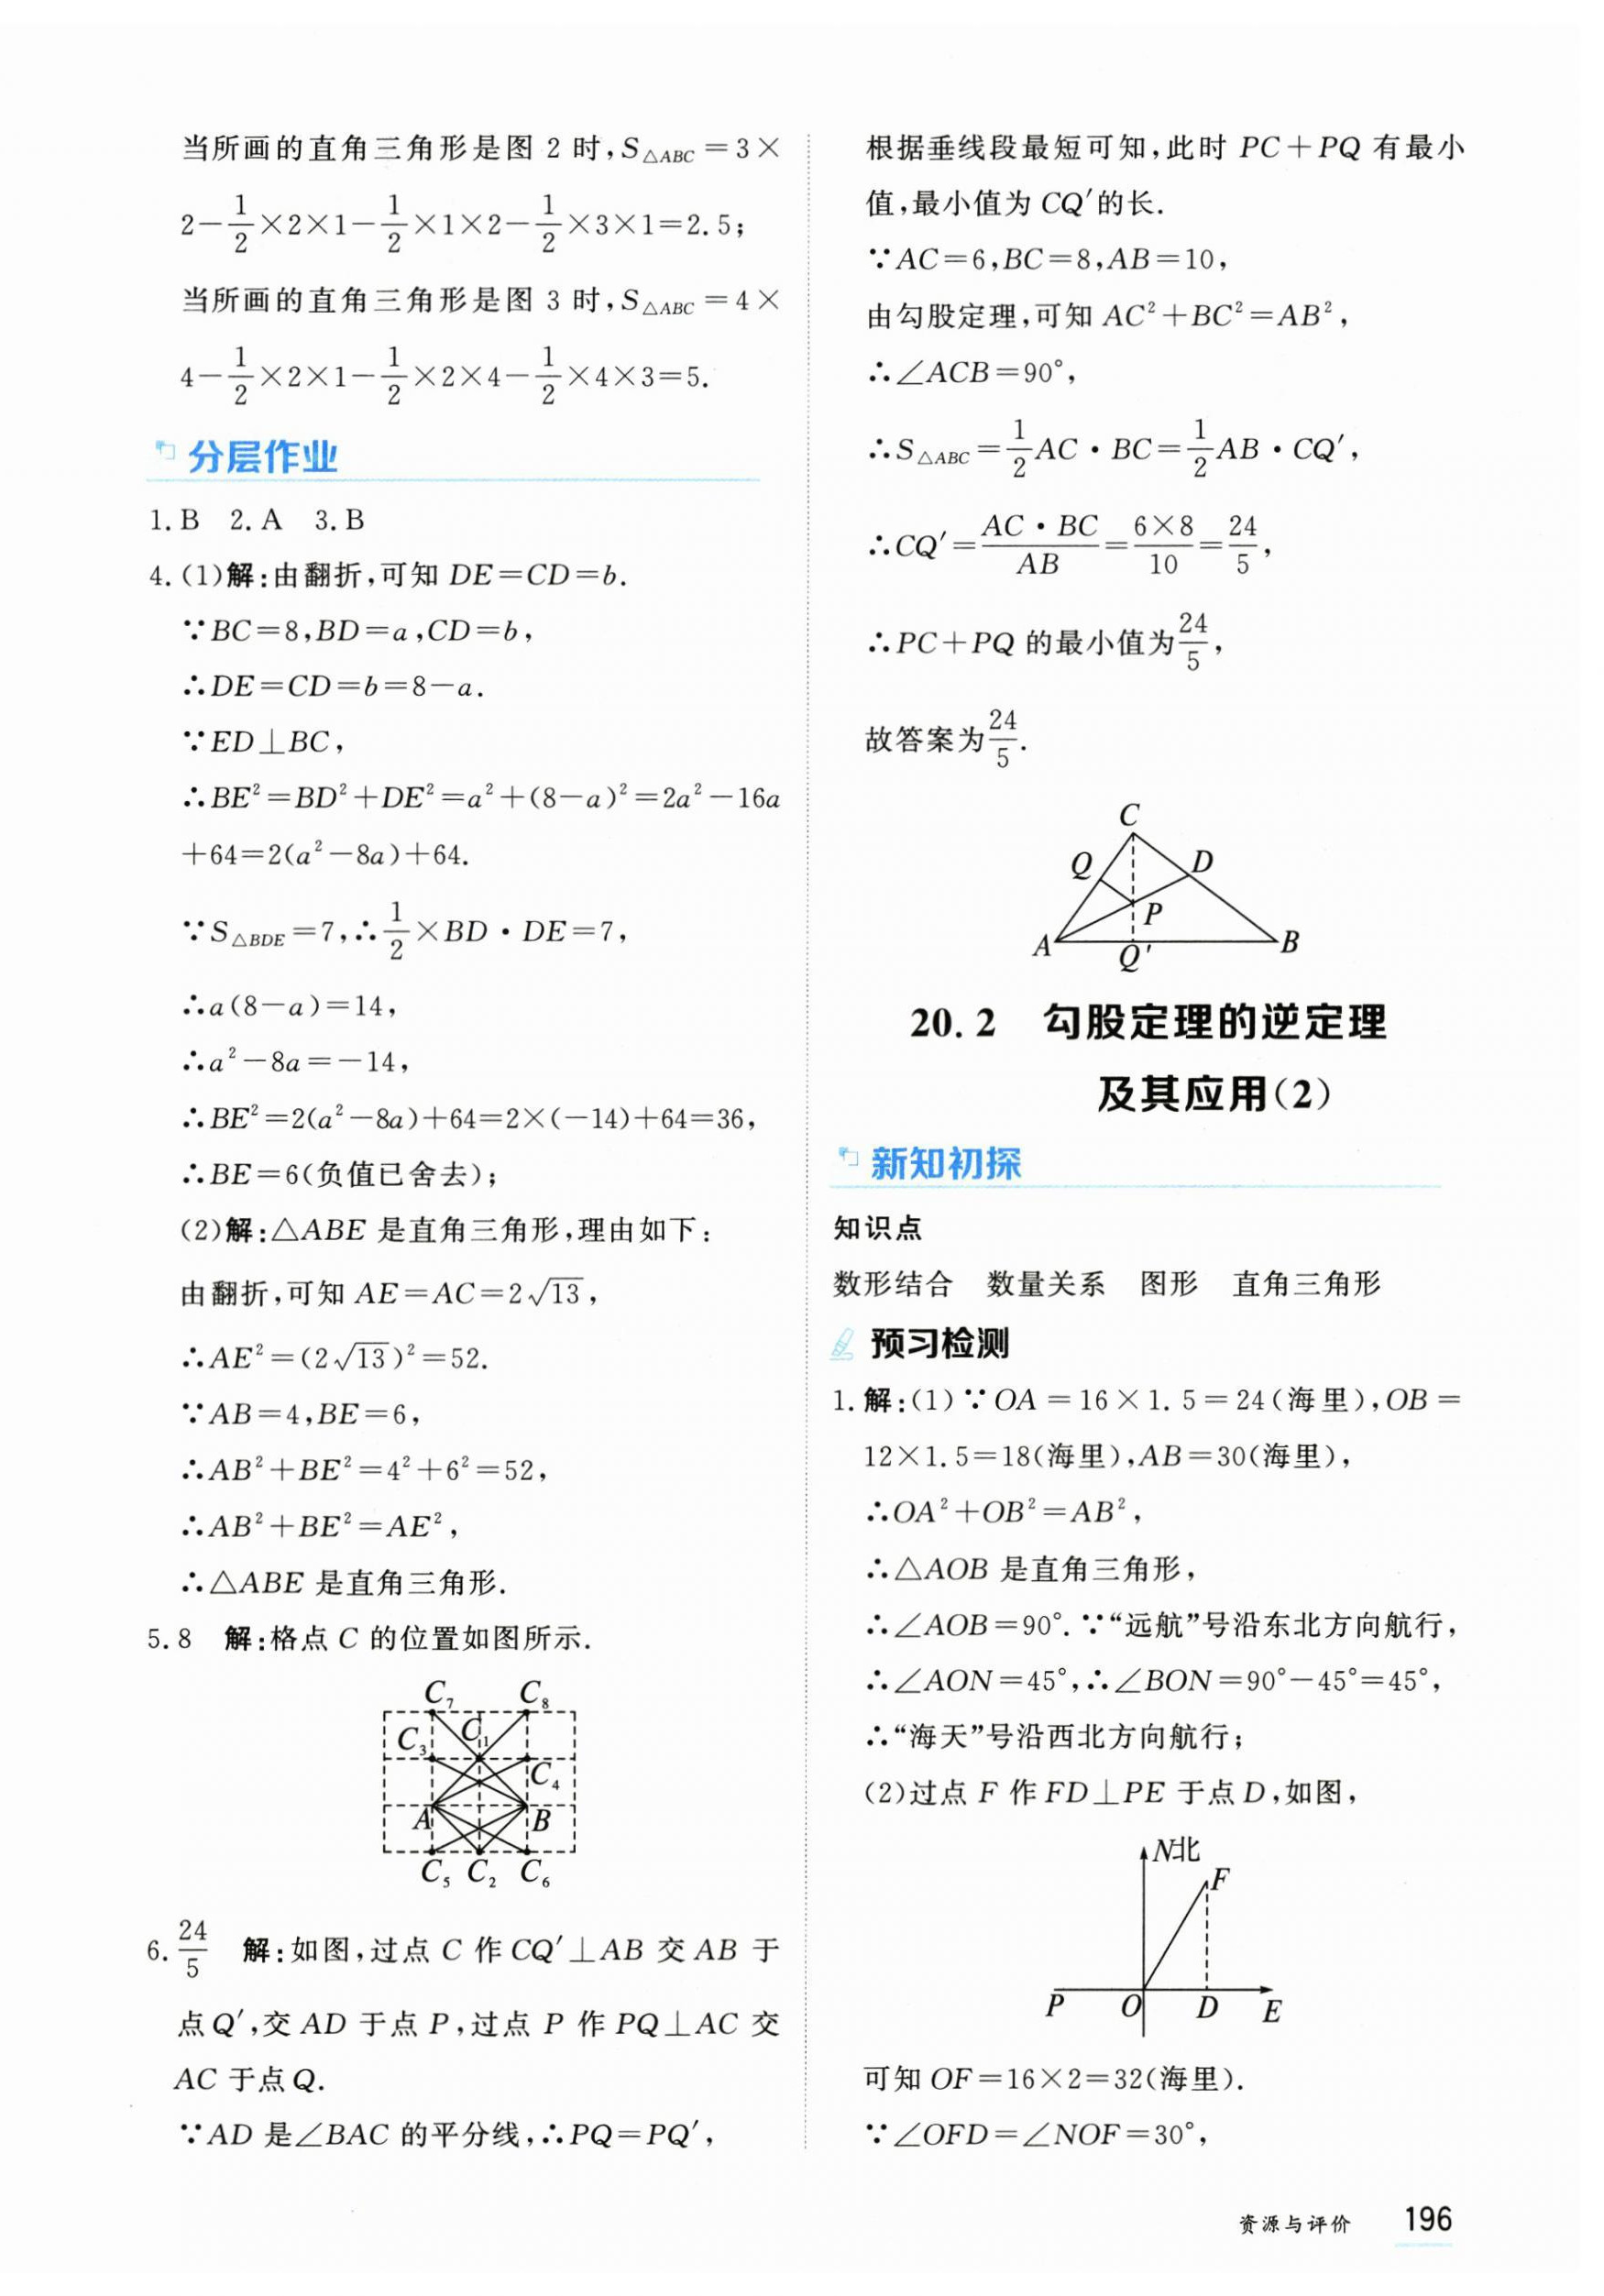 当所画的直角三角形是图 2 时,S△ABC=3×
2-1/2×2×1-1/2×1×2-1/2×3×1=2.5;
当所画的直角三角形是图 3 时,S△ABC=4×
4-1/2×2×1-1/2×2×4-1/2×4×3=5.
分层作业
1.B 2.A 3.B
4.(1)解:由翻折,可知 DE=CD=b.
∵BC=8,BD=a,CD=b,
∴DE=CD=b=8-a.
∵ED⊥BC,
∴BE²=BD²+DE²=a²+(8-a)²=2a²-16a
+64=2(a²-8a)+64.
∵S△BDE=7,∴1/2×BD·DE=7,
∴a(8-a)=14,
∴a²-8a=-14,
∴BE²=2(a²-8a)+64=2×(-14)+64=36,
∴BE=6(负值已舍去);
(2)解:△ABE 是直角三角形,理由如下:
由翻折,可知 AE=AC=2√13,
∴AE²=(2√13)²=52.
∵AB=4,BE=6,
∴AB²+BE²=4²+6²=52,
∴AB²+BE²=AE²,
∴△ABE 是直角三角形.
5.8 解:格点 C 的位置如图所示.
C₇ C₈
C₃ C₁
C₄
A B
C₅ C₂ C₆
6.24/5 解:如图,过点 C 作 CQ′⊥AB 交 AB 于
点 Q′,交 AD 于点 P,过点 P 作 PQ⊥AC 交
AC 于点 Q.
∵AD 是∠BAC 的平分线,∴PQ=PQ′,
根据垂线段最短可知,此时 PC+PQ 有最小
值,最小值为 CQ′的长.
∵AC=6,BC=8,AB=10,
由勾股定理,可知 AC²+BC²=AB²,
∴∠ACB=90°,
∴S△ABC=1/2AC·BC=1/2AB·CQ′,
∴CQ′=AC·BC/AB=6×8/10=24/5,
∴PC+PQ 的最小值为24/5,
故答案为24/5.
C
Q D
P
A Q′ B
20.2 勾股定理的逆定理
及其应用(2)
新知初探
知识点
数形结合 数量关系 图形 直角三角形
预习检测
1.解:(1)∵OA=16×1.5=24(海里),OB=
12×1.5=18(海里),AB=30(海里),
∴OA²+OB²=AB²,
∴△AOB 是直角三角形,
∴∠AOB=90°.∵“远航”号沿东北方向航行,
∴∠AON=45°,∴∠BON=90°-45°=45°,
∴“海天”号沿西北方向航行;
(2)过点 F 作 FD⊥PE 于点 D,如图,
N北
F
P O D E
可知 OF=16×2=32(海里).
∵∠OFD=∠NOF=30°,
资源与评价 196